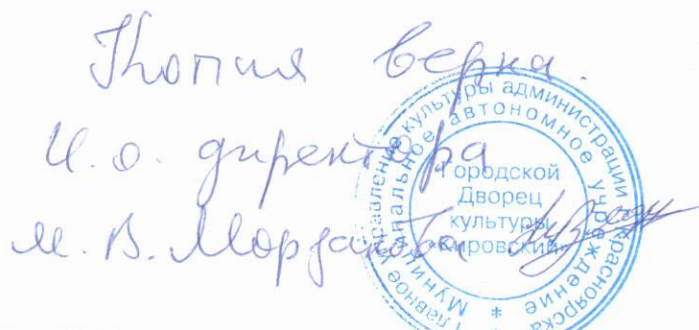 Копия верна.
И.о. директора
М.В.
Главное управление культуры администрации г. Красноярска
Муниципальное автономное учреждение *
Городской
Дворец
культуры
Кировский